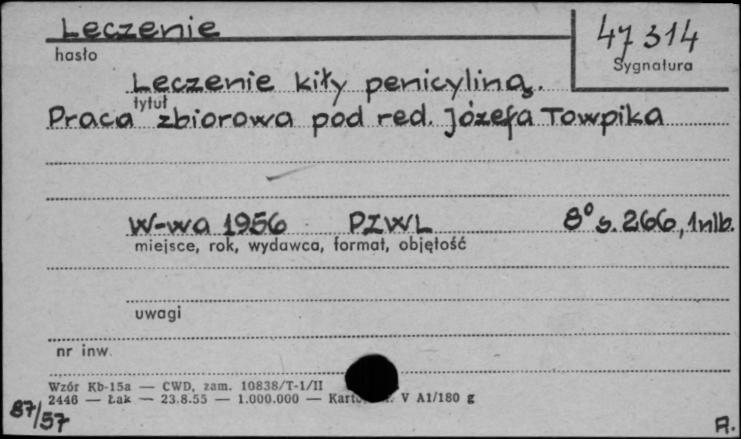 Leczenie
47 314
hasło
Sygnatura
Leczenie kiły penicyliną.
tytuł
Praca zbiorowa pod red. Józefa Towpika
W-wa 1956 PZWL 8° s. 266, 1 nlb.
miejsce, rok, wydawca, format, objętość
uwagi
nr inw.
Wzór Kb-15a — CWD, zam. 10838/T-1/II
2446 — Łak — 23.8.55 — 1.000.000 — V A1/180 g
87/57
A.